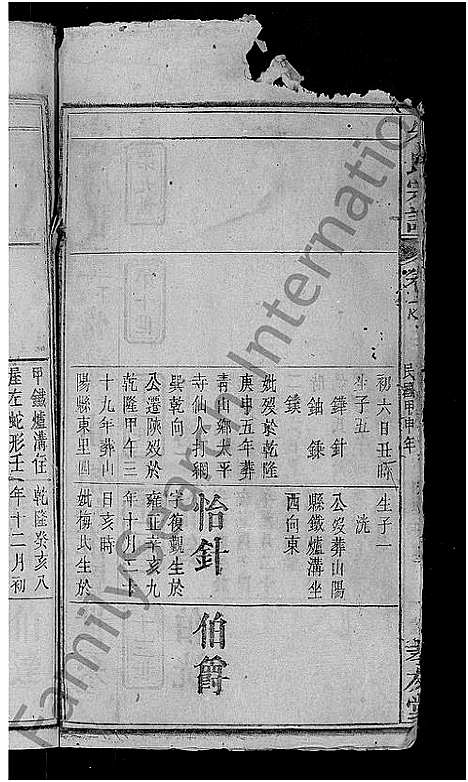 民國甲申年
初六日丑時
生子五
鏵 針
鈾 銇
一鏷
妣歿於乾隆
庚申五年葬
青山鄉太平
寺仙人打網
巽乾向
公遷陝歿於
乾隆甲午三
十九年葬山
陽縣東里四
生子一
洸
公歿葬山陽
縣鐵爐溝坐
西向東
怡針
字復觀生於
雍正辛亥九
年十月二十
日亥時
妣梅氏生於
伯爵
甲鐵爐溝住
崖左蛇形壬
乾隆癸亥八
年十二月初
FamilySearch International